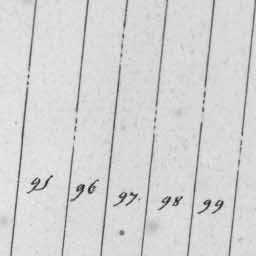 95 96 97. 98 99